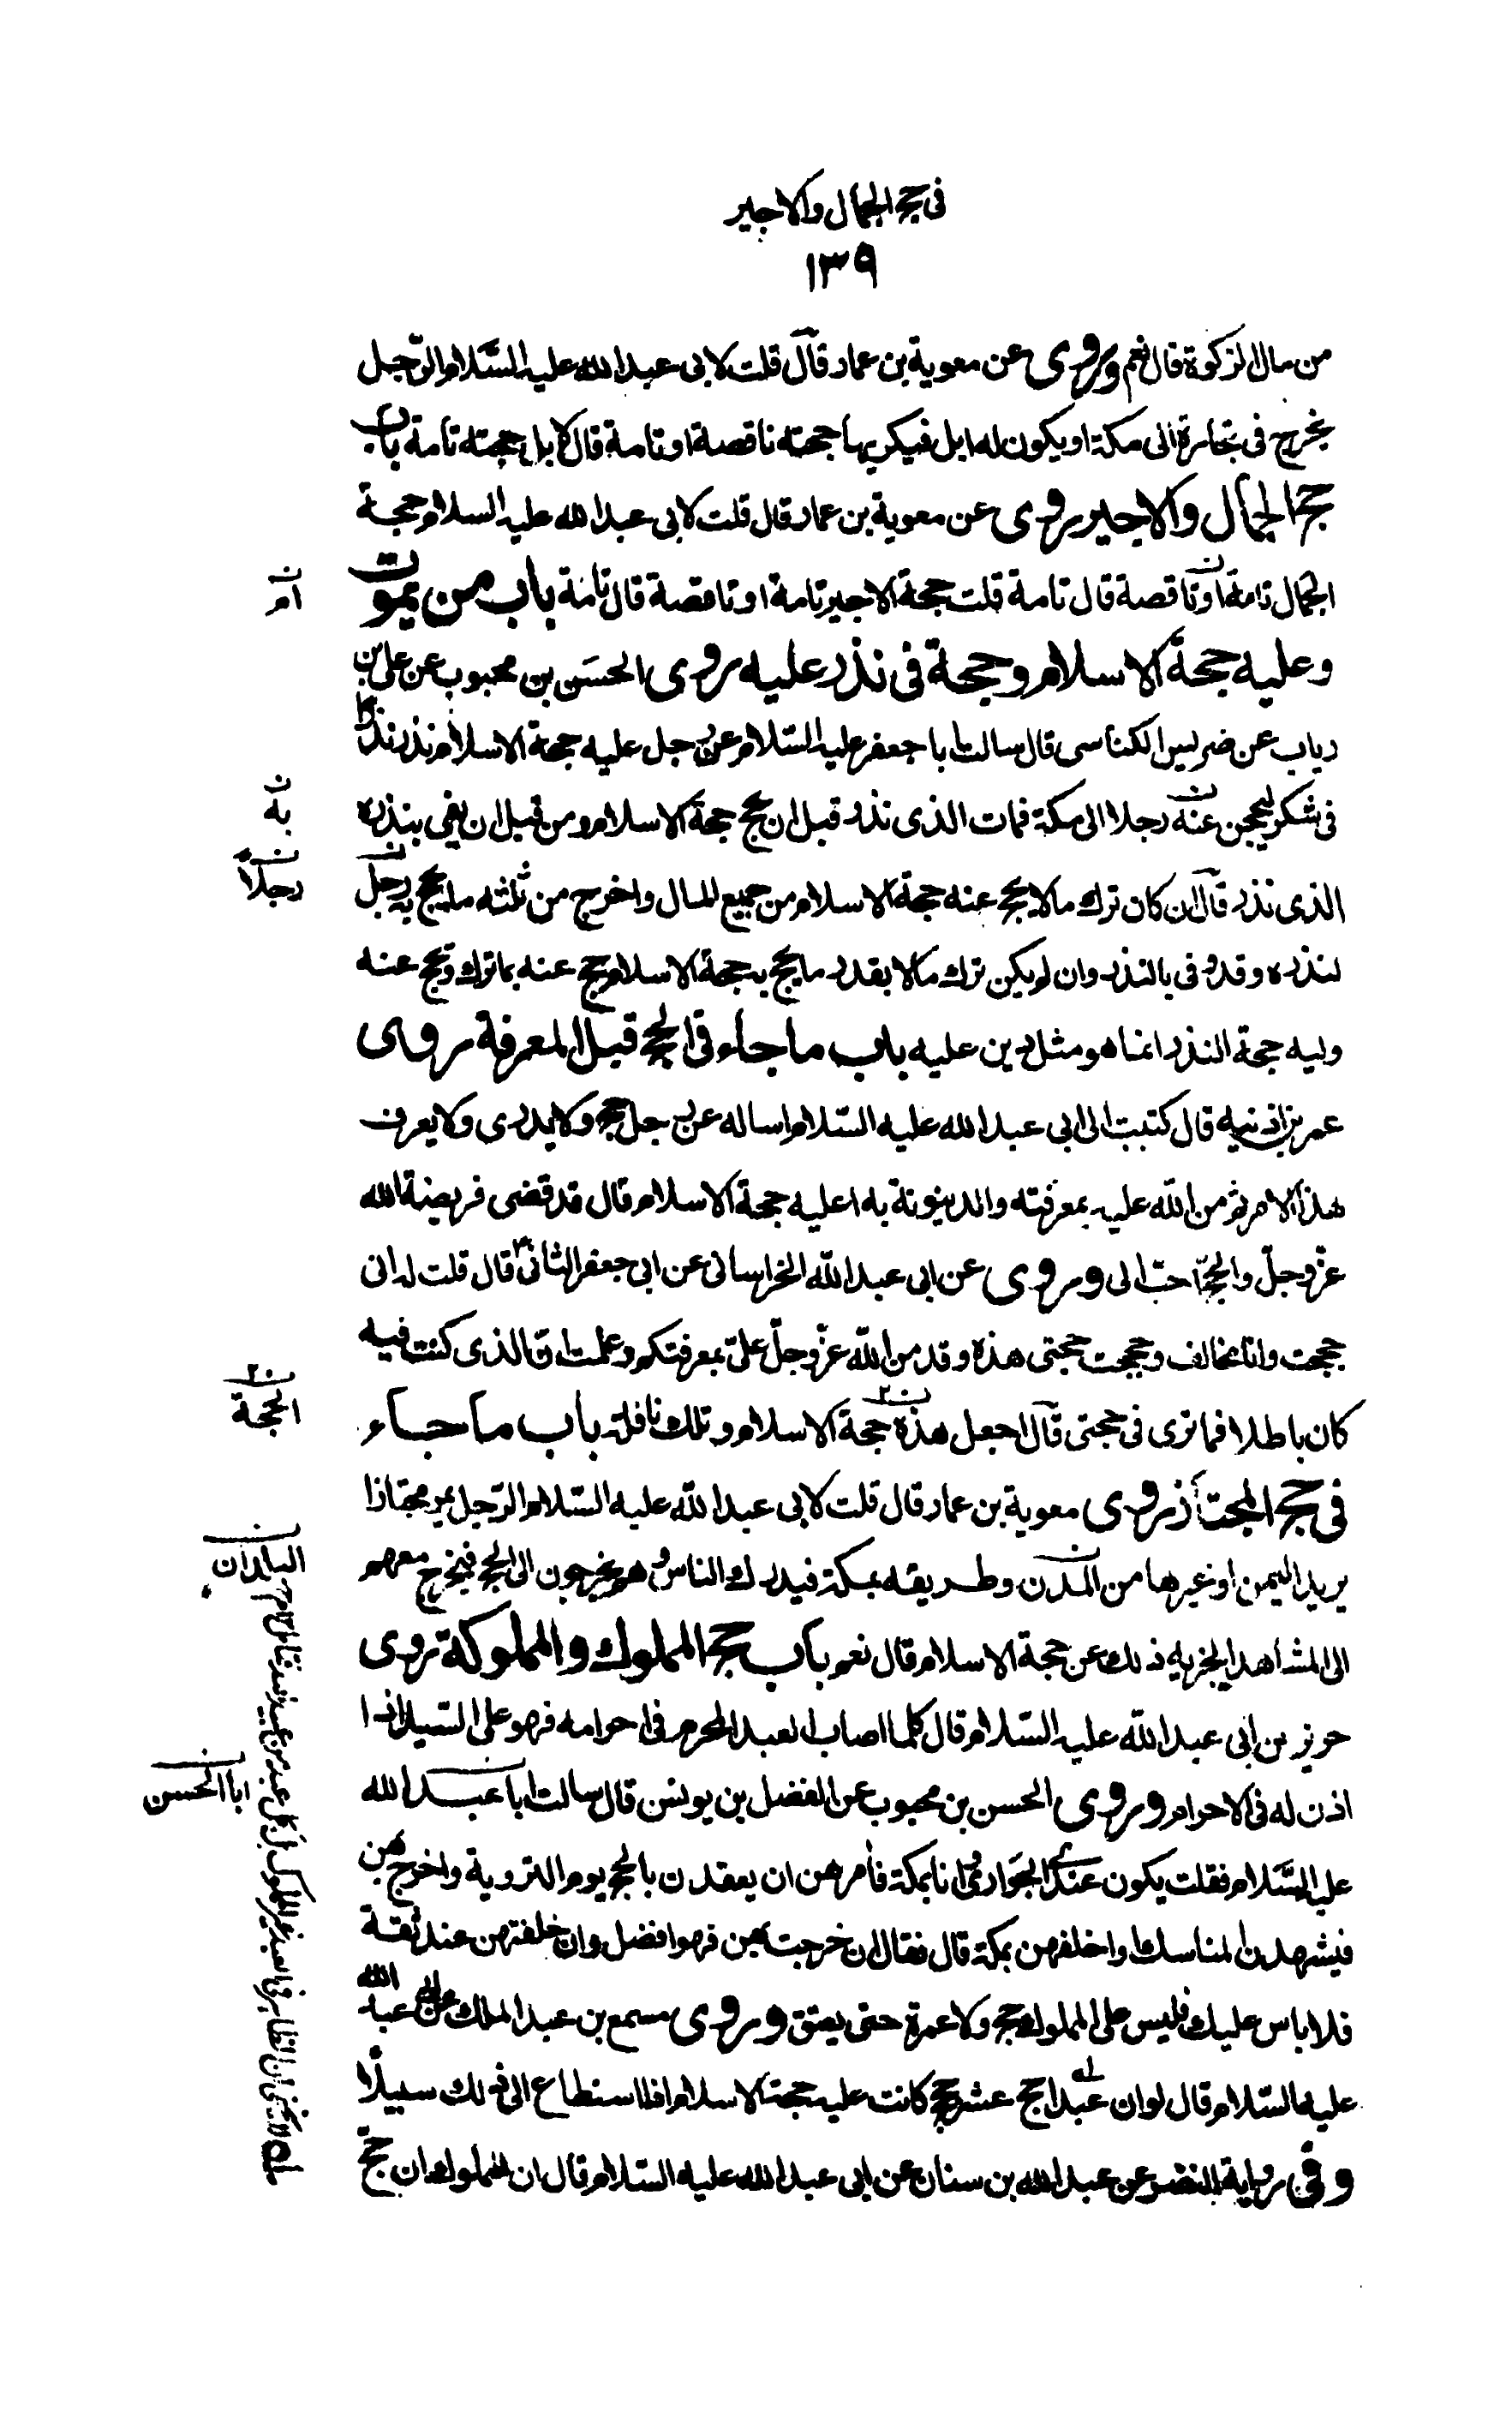 فى حج الجمال والاجير
١٣٩
من مال الزكوة قال نعم وروى عن معوية بن عمار قال قلت لابى عبد الله عليه السلام الرجل
يخرج فى تجارة الى مكة او يكون له ابل فيكريها حجته ناقصة او تامة قال لا بل حجته تامة باب
حج الجمال والاجير روى عن معوية بن عمار قال قلت لابى عبد الله عليه السلام حجة
الجمال تامة او ناقصة قال تامة قلت حجة الاجير تامة او ناقصة قال تامة باب من يموت
وعليه حجة الاسلام وحجة فى نذر عليه روى الحسن بن محبوب عن على بن
رياب عن ضريس الكناسى قال سالت ابا جعفر عليه السلام عن رجل عليه حجة الاسلام نذر نذرا
فى شكر ليحجن عنه رجلا الى مكة فمات الذى نذر قبل ان يحج حجة الاسلام ومن قبل ان يفى بنذره
الذى نذر قال ان كان ترك مالا يحج عنه حجة الاسلام من جميع المال واخرج من ثلثه ما يحج به رجل
لنذره وقد وفى بالنذر وان لم يكن ترك مالا بقدر ما يحج به حجة الاسلام حج عنه بما ترك ويحج عنه
وليه حجة النذر انما هو مثل دين عليه باب ما جاء فى الحج قبل المعرفة روى
عمر بن اذنيه قال كتبت الى ابى عبد الله عليه السلام اساله عن رجل حج ولا يدرى ولا يعرف
هذا الامر ثم من الله عليه بمعرفته والدينونة به اعليه حجة الاسلام قال قد قضى فريضة الله
عز وجل والحج احب الى وروى عن ابى عبد الله الخراسانى عن ابى جعفر الثانى ع قال قلت له انى
حججت وانا مخالف وحججت حجتى هذه وقد من الله عز وجل على بمعرفتكم وعلمت ان الذى كنت فيه
كان باطلا فما ترى فى حجتى قال اجعل هذه حجة الاسلام وتلك نافلة باب ما جاء
فى حج المجتاز روى معوية بن عمار قال قلت لابى عبد الله عليه السلام الرجل يمر مجتازا
يريد اليمن او غيرها من المدن وطريقه بمكة فيدرك الناس وهم يخرجون الى الحج فيخرج معهم
الى المشاهد ايجزيه ذلك عن حجة الاسلام قال نعم باب حج المملوك والمملوكة روى
حريز عن ابى عبد الله عليه السلام قال كلما اصاب العبد المحرم فى احرامه فهو على السيد اذا
اذن له فى الاحرام وروى الحسن بن محبوب عن الفضل بن يونس قال سالت ابا عبد الله
عليه السلام فقلت يكون عندى الجوارى وانا بمكة فامرهن ان يعقدن بالحج يوم التروية واخرج بهن
فيشهدن المناسك او اخلفهن بمكة قال فقال ان خرجت بهن فهو افضل وان خلفتهن عند ثقة
فلا باس عليك فليس على المملوك حج ولا عمرة حتى يعتق وروى مسمع بن عبد الملك عن ابى عبد الله
عليه السلام قال لو ان عبدا حج عشر حجج كانت عليه حجة الاسلام اذا استطاع الى ذلك سبيلا
وفى رواية النضر عن عبد الله بن سنان عن ابى عبد الله عليه السلام قال ان المملوك ان حج
ام ن
به ن
رجلا ن
الحجة ن
البلدان ن
ابا الحسن ن